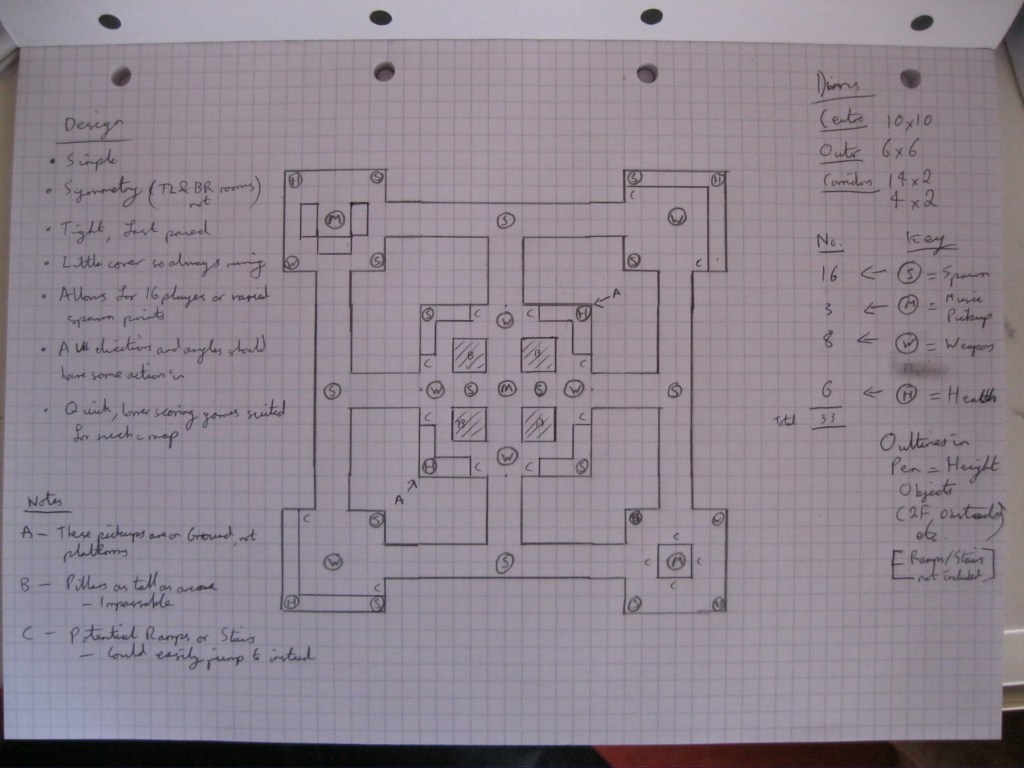 Design
• Simple
• Symmetry (TL & BR rooms
not
• Tight, fast paced
• Little cover so always
• Allows for 16 players or varied
spawn points
• All directions and angles should
have some action in
• Quick, lower scoring games suited
for such a map
Notes
A - These pickups are on Ground, not
platforms
B - Pillars as tall as arena
- Impassable
C - Potential Ramps or Stairs
- Could easily jump to instead
H S S H
C
M S W
W S S C
A
S C W C H
B B
C C
S W S M S W S
C C
B B
H C W C S
A
C S H W
W C M C
C S C
H S S H
Dims
Centre 10x10
Outer 6x6
Corridors 14x2
4x2
No. Key
16 ← S = Spawn
3 ← M = Music
Pickup
8 ← W = Weapons
6 ← H = Health
Total 33
Outlines in
Pen = Height
Objects
(2F, 
etc
[Ramps/Stairs
not included]